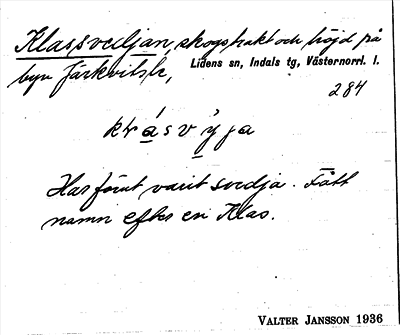 Klassvedjan, skogstrakt och höjd på
byn Järkvitsle, Lidens sn, Indals tg, Västernorrl. l.
284
kɩạ́sv̱ýja
Har förut varit svedja. Fått
namn efter en Klas.
VALTER JANSSON 1936